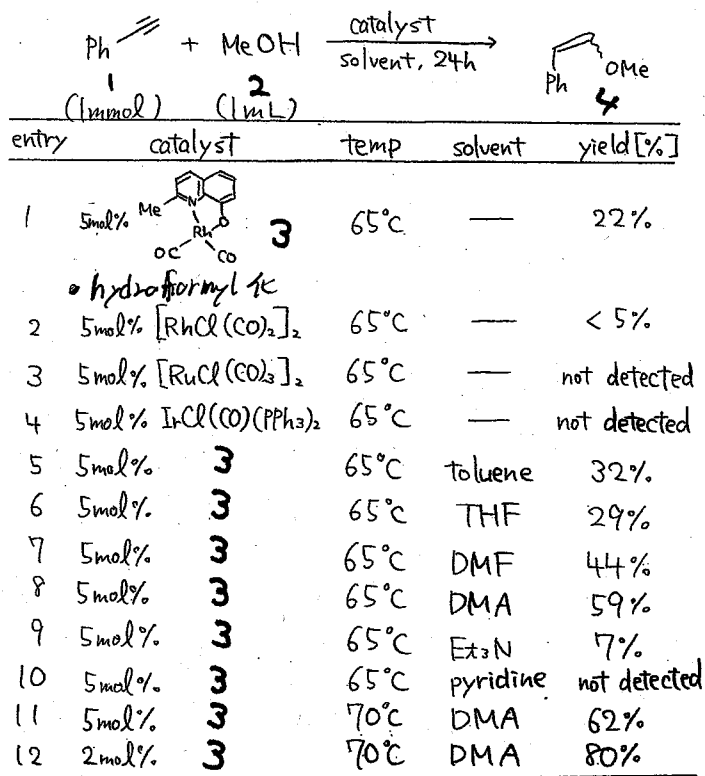 Ph + MeOH catalyst solvent, 24h Ph OMe
1 2 4
(1mmol) (1mL)
entry catalyst temp solvent yield [%]
1 5mol% Me N O Rh OC CO 3 65°C — 22%
• hydroformyl化
2 5mol% [RhCl(CO)₂]₂ 65°C — < 5%
3 5mol% [RuCl(CO)₃]₂ 65°C — not detected
4 5mol% IrCl(CO)(PPh₃)₂ 65°C — not detected
5 5mol% 3 65°C toluene 32%
6 5mol% 3 65°C THF 29%
7 5mol% 3 65°C DMF 44%
8 5mol% 3 65°C DMA 59%
9 5mol% 3 65°C Et₃N 7%
10 5mol% 3 65°C pyridine not detected
11 5mol% 3 70°C DMA 62%
12 2mol% 3 70°C DMA 80%